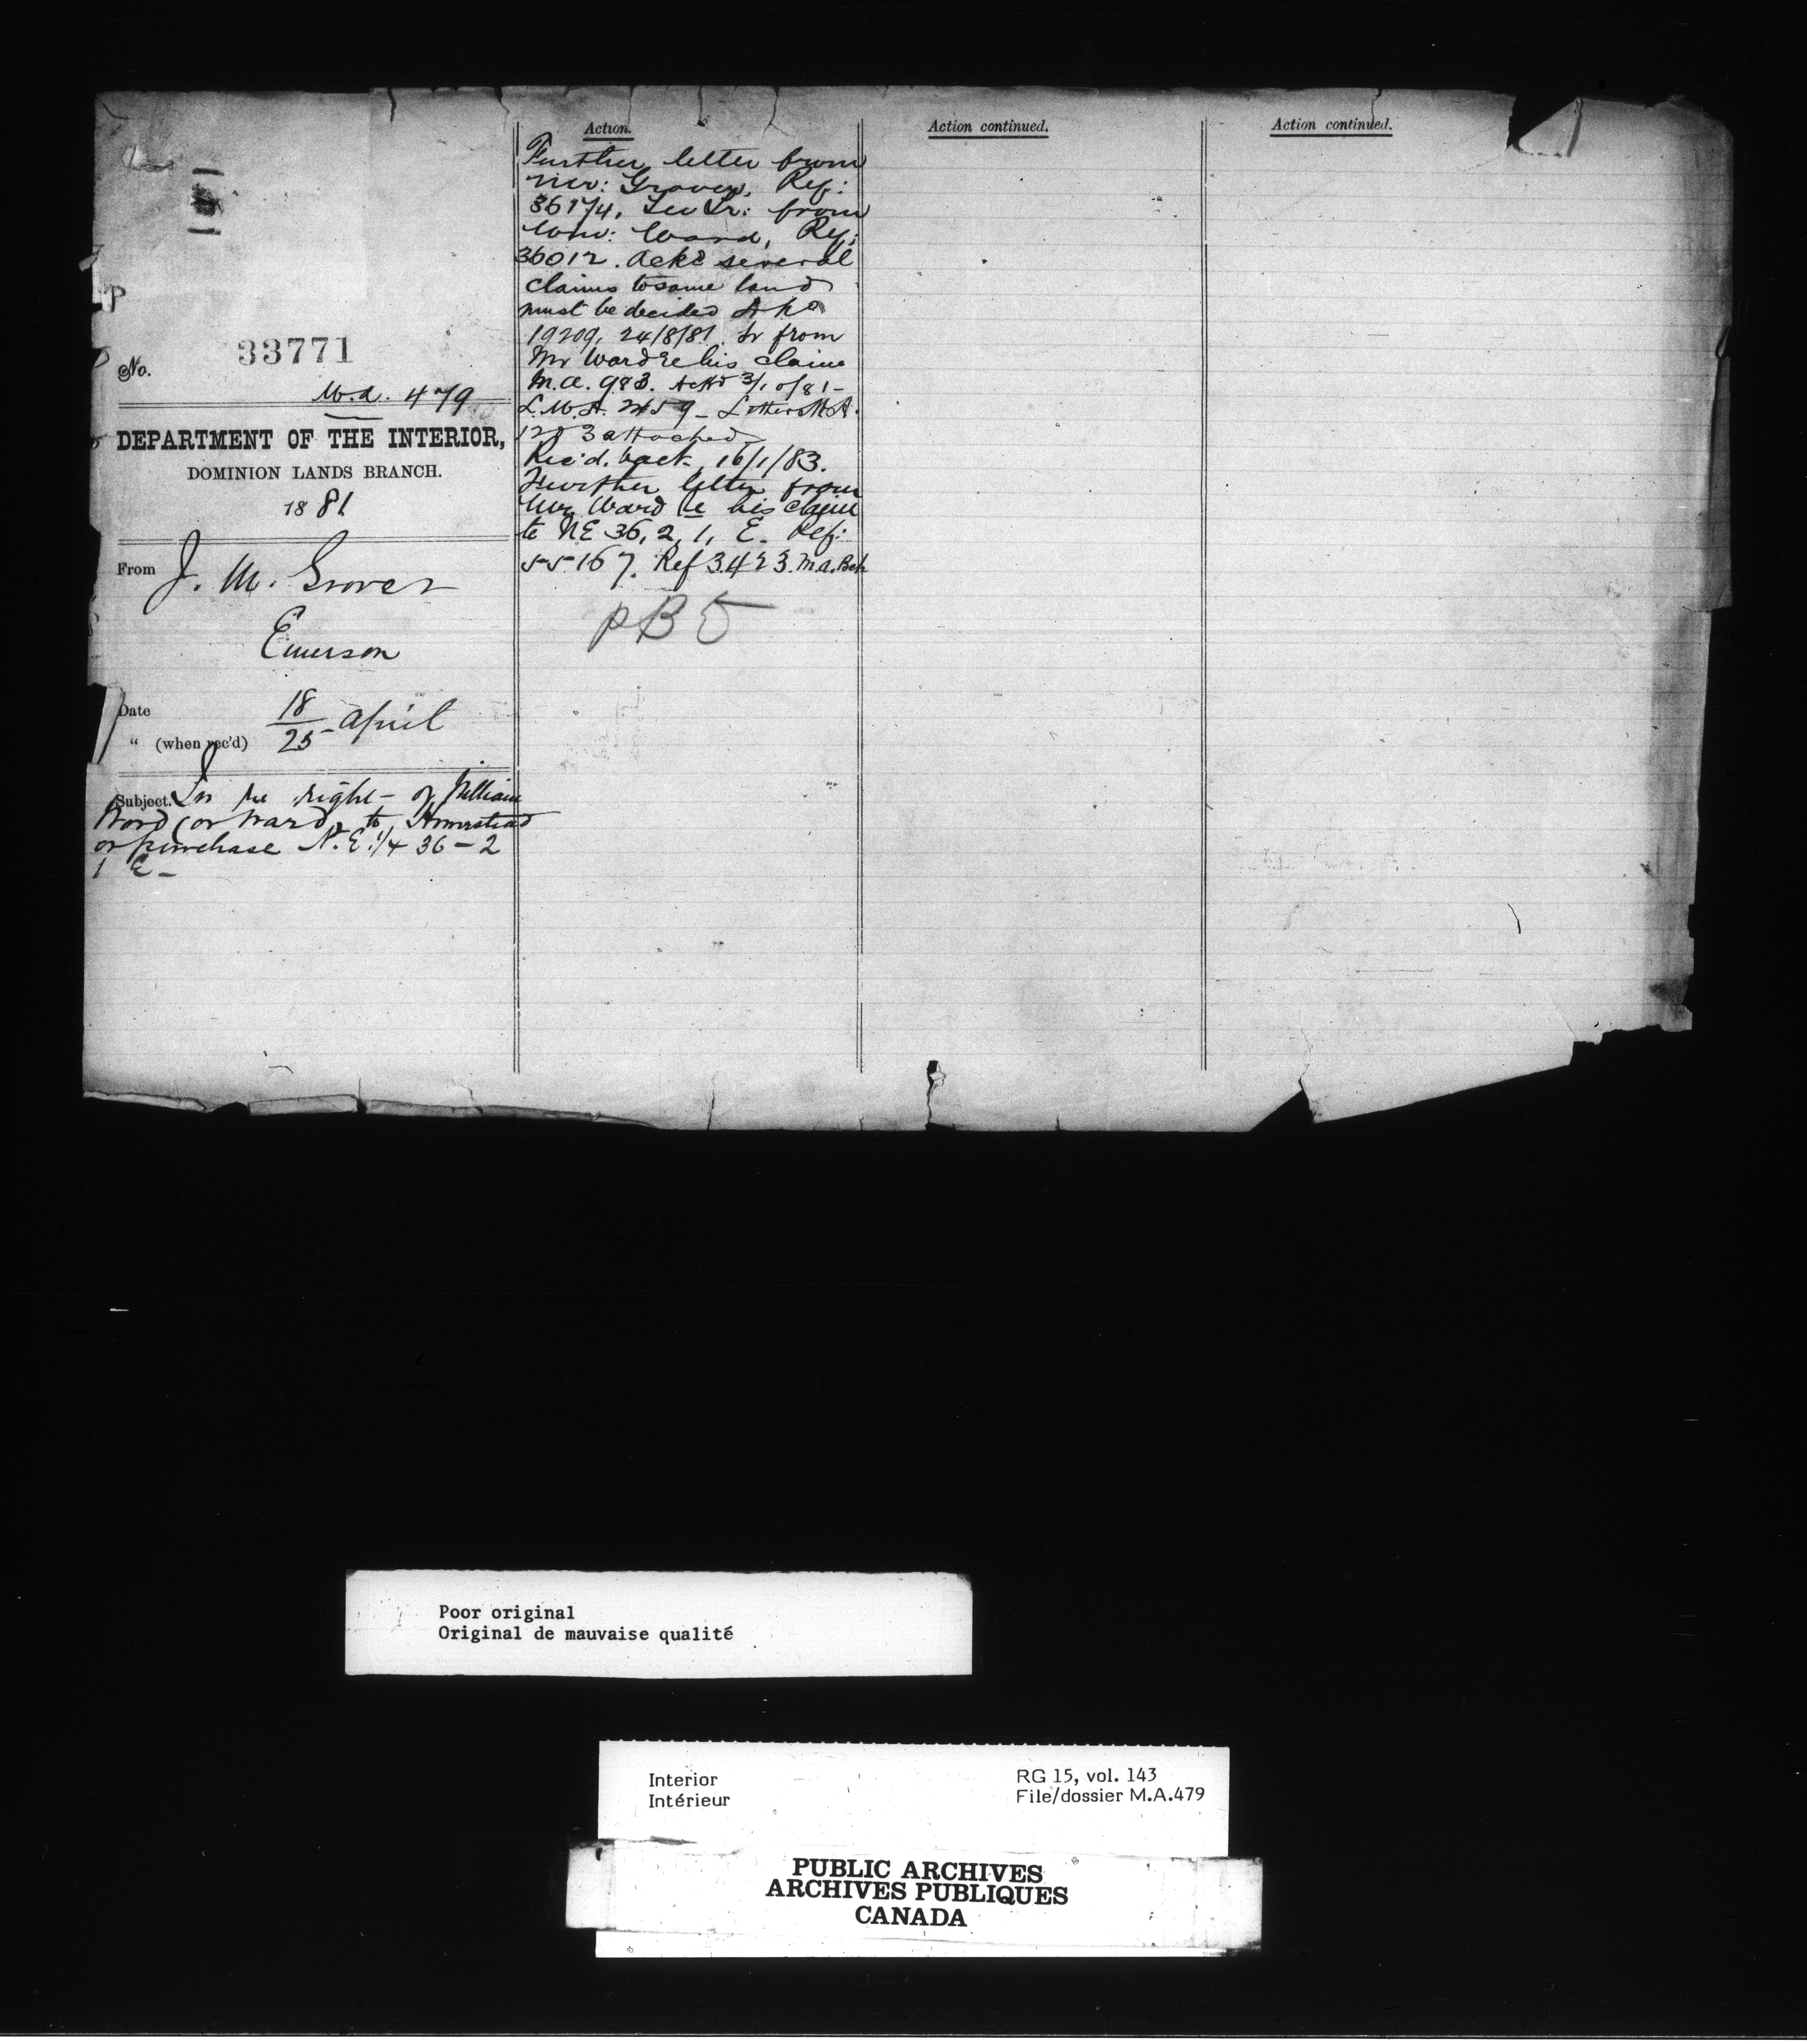 No. 33771
M.A. 479
DEPARTMENT OF THE INTERIOR,
DOMINION LANDS BRANCH.
1881
From J. M. Grover
Emerson
Date 18 April
" (when rec'd) 25
Subject. In re right of William
Word (or Ward) to Homestead
or purchase N.E. 1/4 36-2
1 E-
Action.
Further letter from
Mr: Grover, Ref:
36174. See Lr: from
Wm: Ward, Ref:
36012. Ackd several
claims to same land
must be decided
19209, 24/8/81. Lr from
Mr Ward re his claim
M.A. 983. Ackd 3/10/81-
L.M.A. 2459 - Letters M.A.
attached
Rec'd. back 16/1/83.
Further letter from
Mr Ward re his claim
to NE 36, 2, 1, E. Ref:
55167. Ref 3423. M.A. Bch
PB5
Action continued.
Action continued.
Poor original
Original de mauvaise qualité
Interior
Intérieur
RG 15, vol. 143
File/dossier M.A.479
PUBLIC ARCHIVES
ARCHIVES PUBLIQUES
CANADA